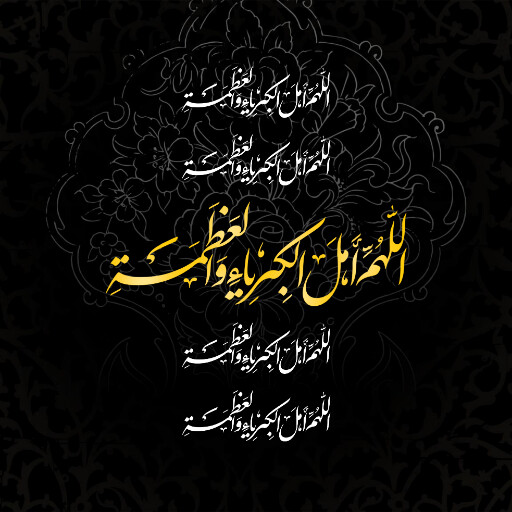 اللّهُمَّ أَهلَ الکِبرِیاءِ وَالعَظَمَةِ
اللّهُمَّ أَهلَ الکِبرِیاءِ وَالعَظَمَةِ
اللّهُمَّ أَهلَ الکِبرِیاءِ وَالعَظَمَةِ
اللّهُمَّ أَهلَ الکِبرِیاءِ وَالعَظَمَةِ
اللّهُمَّ أَهلَ الکِبرِیاءِ وَالعَظَمَةِ